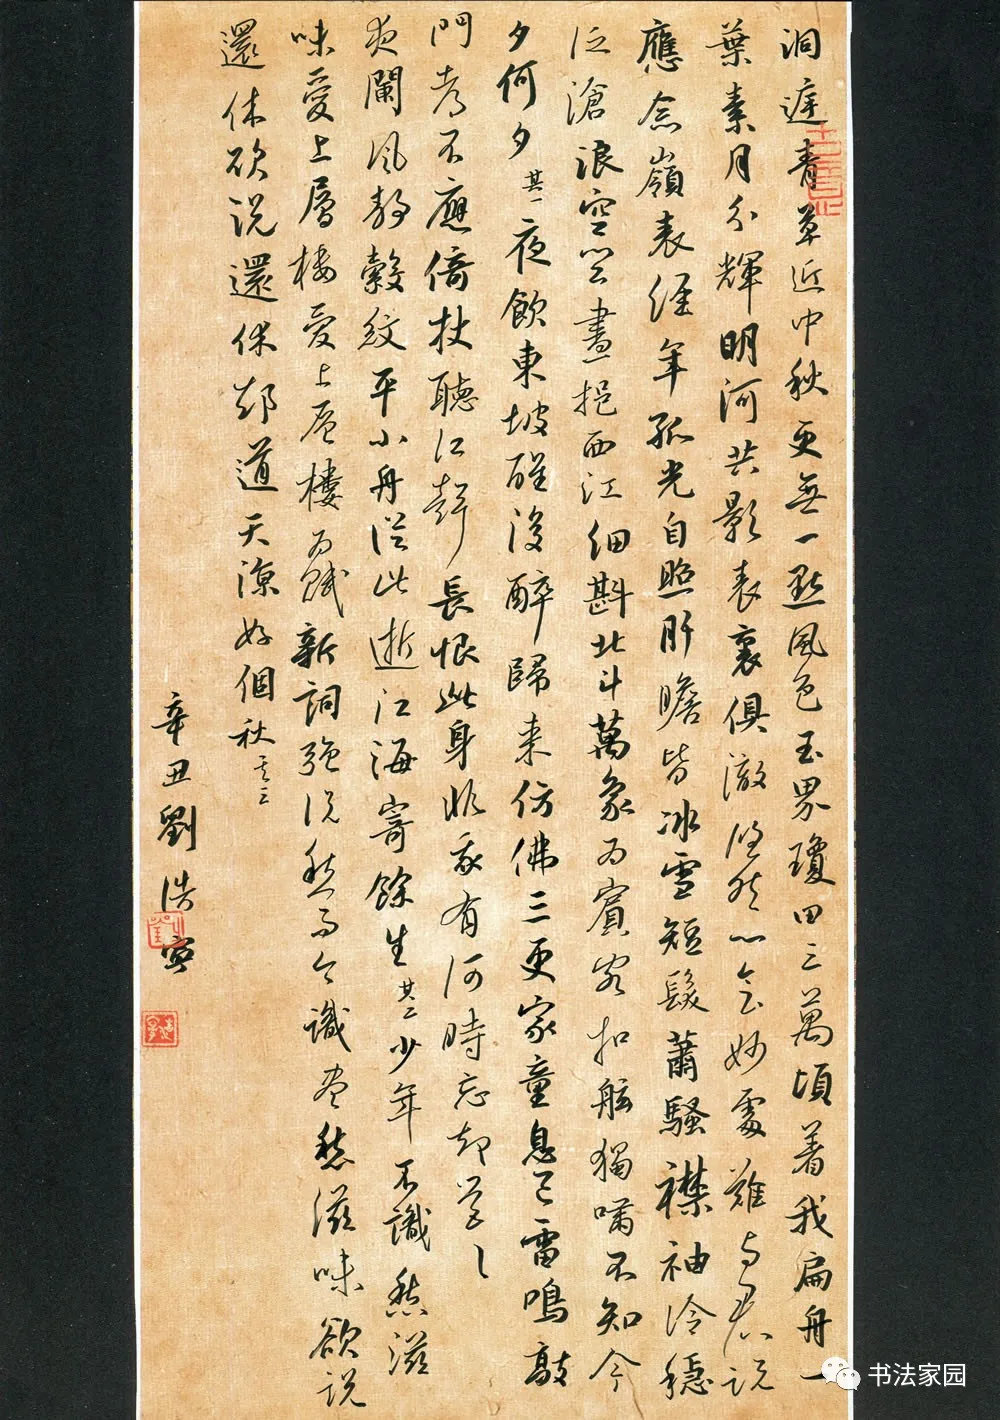 洞庭青草近中秋更無一點風色玉界瓊田三萬頃着我扁舟一
葉素月分輝明河共影表裏俱澈悠然心會妙處難與君說
應念嶺表經年孤光自照肝膽皆冰雪短髮蕭騷襟袖冷穩
泛滄浪空闊盡挹西江細斟北斗萬象為賓客扣舷獨嘯不知今
夕何夕其一夜飲東坡醒復醉歸来仿佛三更家童息已雷鳴敲
門都不應倚杖聽江聲長恨此身非我有何時忘却營〻
夜闌風靜縠紋平小舟從此逝江海寄餘生其二少年不識愁滋
味愛上層樓愛上層樓為賦新詞強說愁而今識盡愁滋味欲說
還休欲說還休却道天涼好個秋其三
辛丑劉浩
书法家园